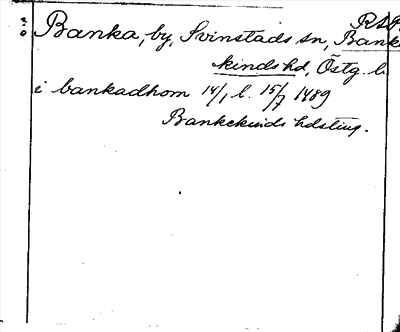 RAP.
Banka, by, Svinstads sn, Bank
kinds hd, Östg. l.
i bankadhom 14/1 l. 15/7 1489
Bankekinds hdsting.